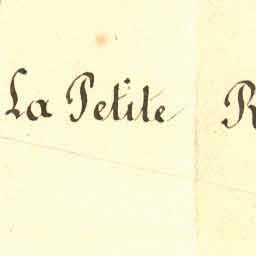 La Petite R